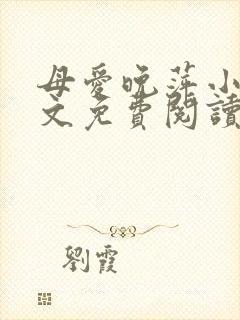 母愛晚萍小
文免費閱讀
劉霞